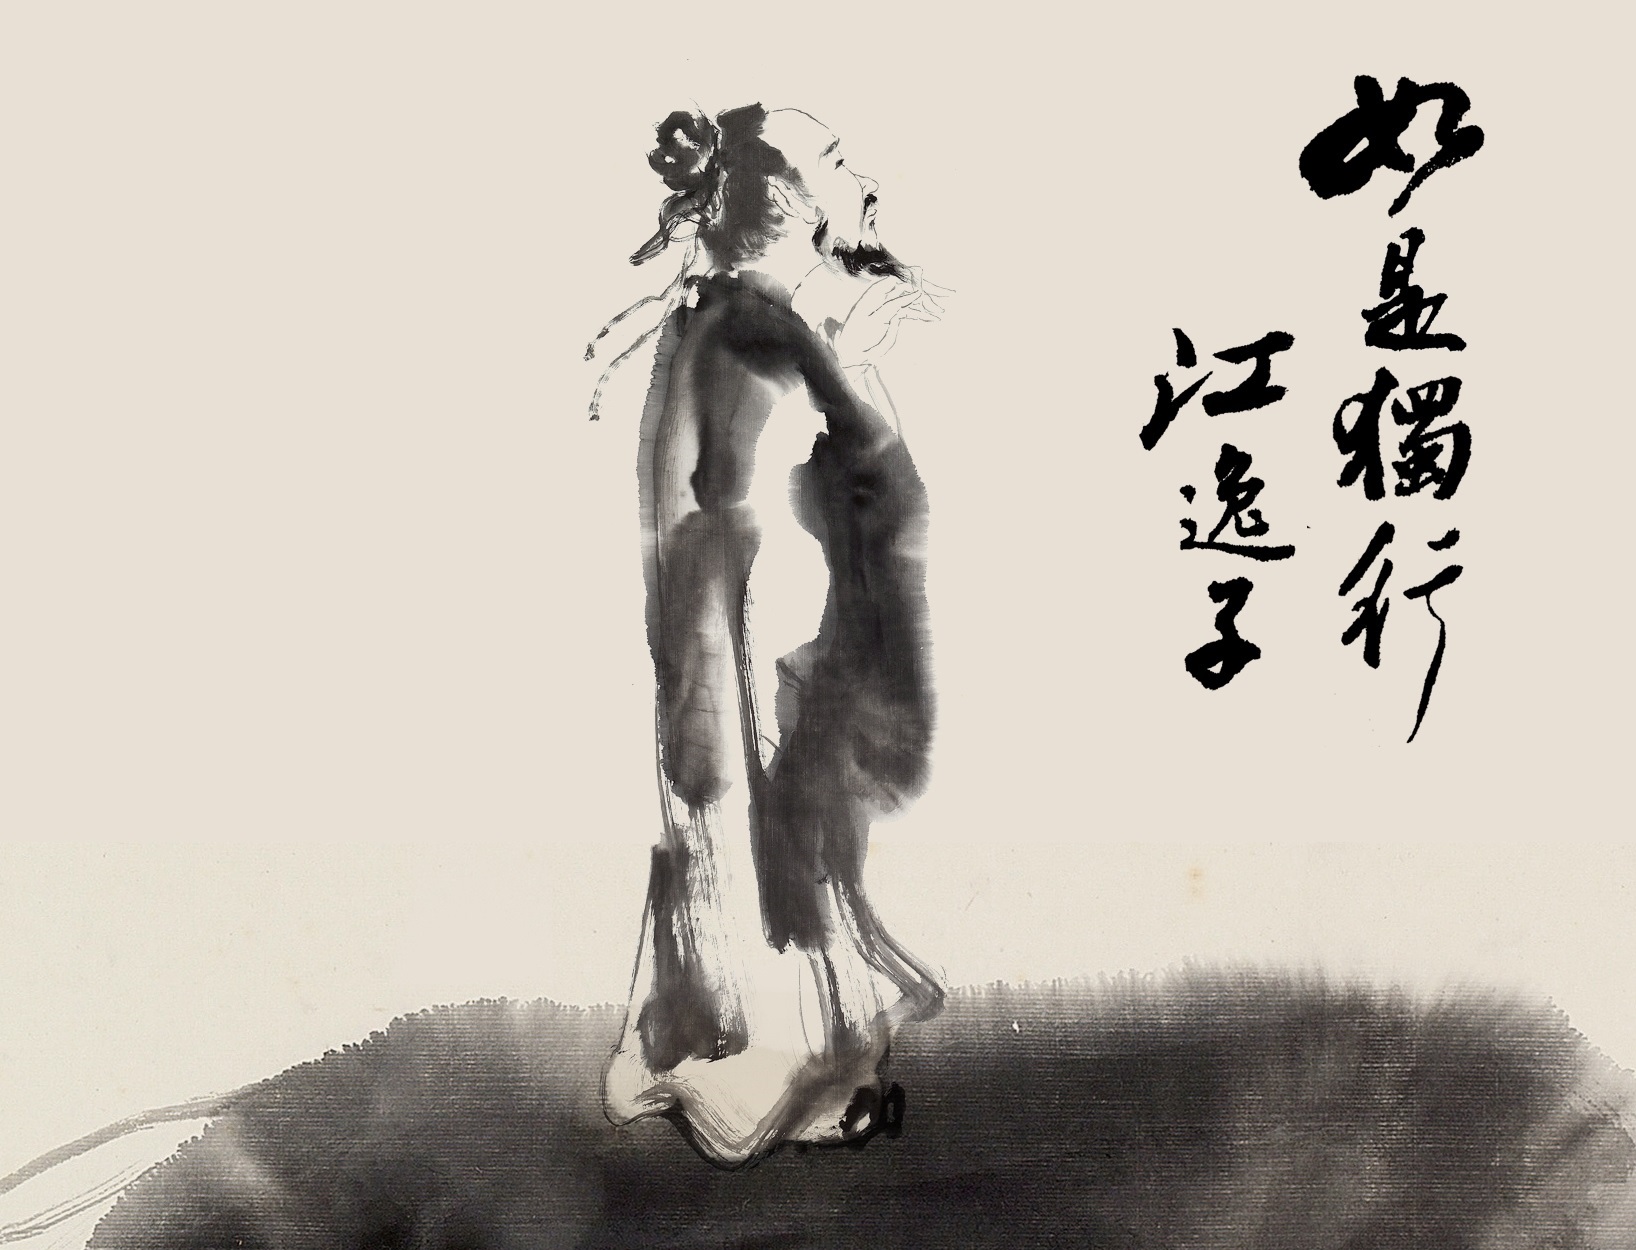 如是獨行
江逸子